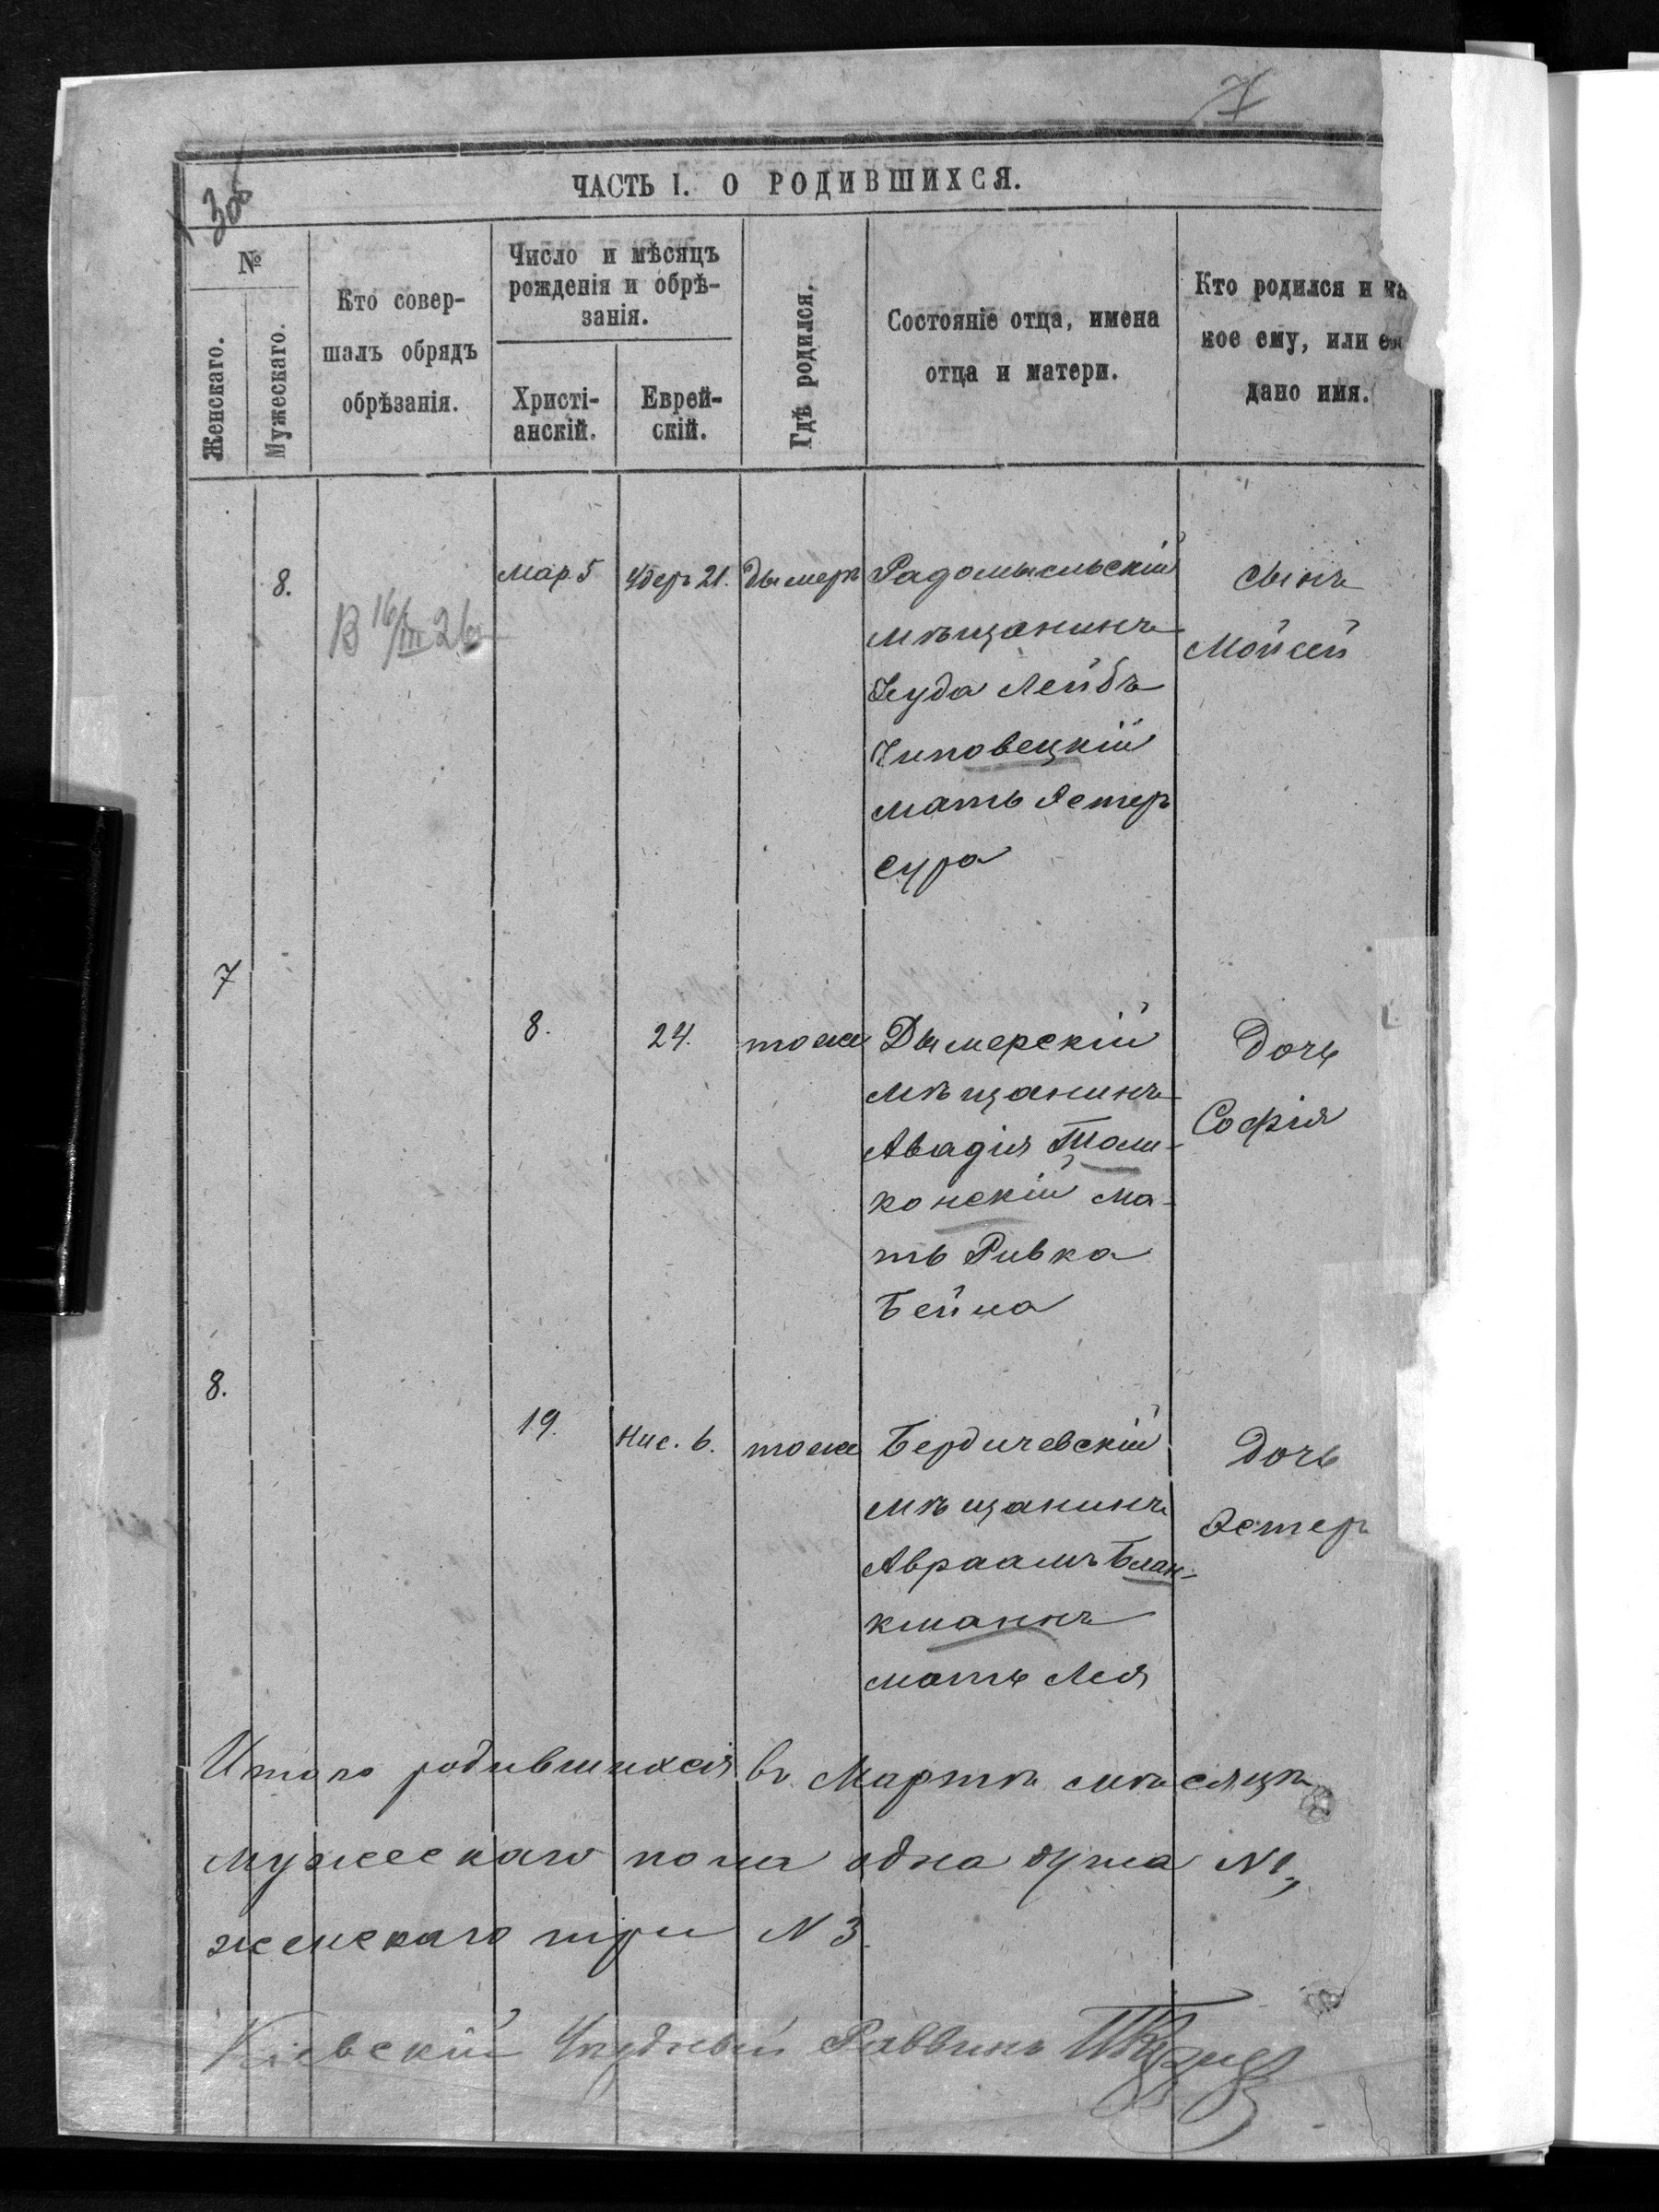 7
ЧАСТЬ I. О РОДИВШИХСЯ.
№
Женскаго.
Мужескаго.
Кто совер-
шалъ обрядъ
обрѣзанія.
Число и мѣсяцъ
рожденія и обрѣ-
занія.
Христі-
анскій.
Еврей-
скій.
Гдѣ родился.
Состояніе отца, имена
отца и матери.
Кто родился и ка
кое ему, или ей
дано имя.
8.
В 16/III 26
Мар. 5
Адеръ 21.
Дымеръ
Радомысльскій
мѣщанинъ
Іуда Лейбъ
Чиповецкій
мать Эстеръ
Сура
сынъ
Мойсей
7
8.
24.
тоже
Дымерскій
мѣщанинъ
Авадія
конскій ма-
ть Ривка
Бейла
Дочь
Софія
8.
19.
Нис. 6.
тоже
Бердичевскій
мѣщанинъ
Авраамъ Блан-
кманнъ
мать Лея
Дочь
Эстеръ
Итого родившихся въ Мартѣ мѣсяцѣ
мужескаго пола одна душа №1,
женскаго три №3.
Кіевскій Уѣздный Раввинъ